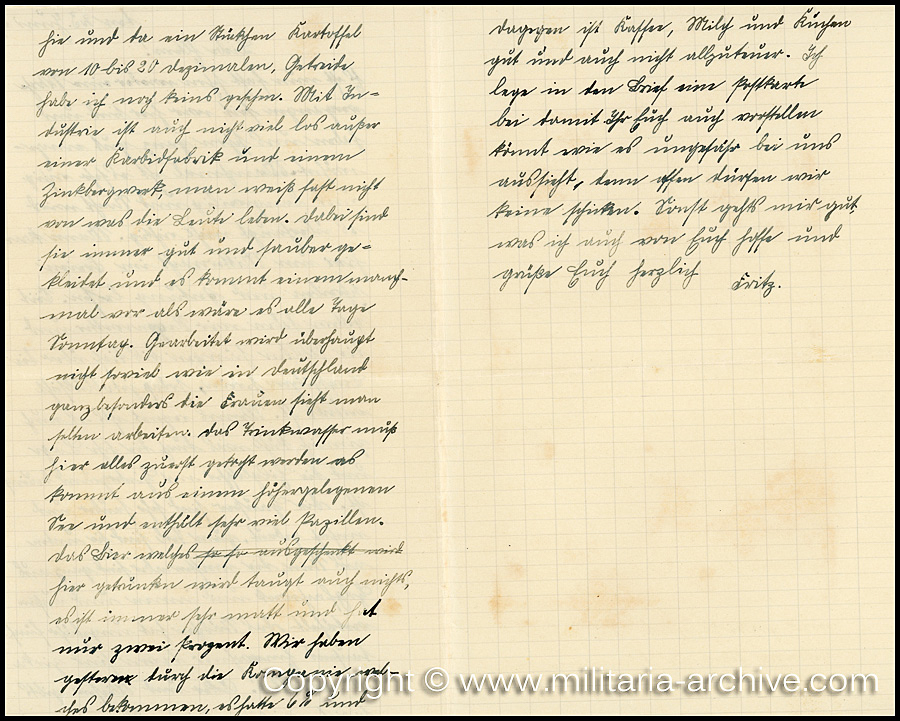 hie und da ein Stückchen Kartoffel
von 10 bis 20 Dezimalen, Getreide
habe ich noch keins gesehen. Mit In-
dustrie ist auch nicht viel los außer
einer Karbidfabrik und einem
Zinkbergwerk, man weiß fast nicht
von was die Leute leben. Dabei sind
sie immer gut und sauber ge-
kleidet und es kommt einem manch-
mal vor als wäre es alle Tage
Sonntag. Gearbeitet wird überhaupt
nicht soviel wie in Deutschland
ganz besonders die Frauen sieht man
selten arbeiten. Das Trinkwasser muß
hier alles zuerst gekocht werden es
kommt aus einem höhergelegenen
See und enthält sehr viel Bazillen.
Das Bier welches so so ausgeschenkt wird
hier getrunken wird taugt auch nichts,
es ist immer sehr matt und hat
nur zwei Prozent. Wir haben
gestern durch die Kompanie wel-
ches bekommen, es hatte 6% und
dagegen ist Kaffee, Milch und Kuchen
gut und auch nicht allzuteuer. Ich
lege in den Brief eine Postkarte
bei damit Ihr Euch auch vorstellen
könnt wie es ungefähr bei uns
aussieht, denn offen dürfen wir
keine schicken. Sonst gehts mir gut,
was ich auch von Euch hoffe und
grüße Euch herzlich
Fritz.
Copyright © www.militaria-archive.com